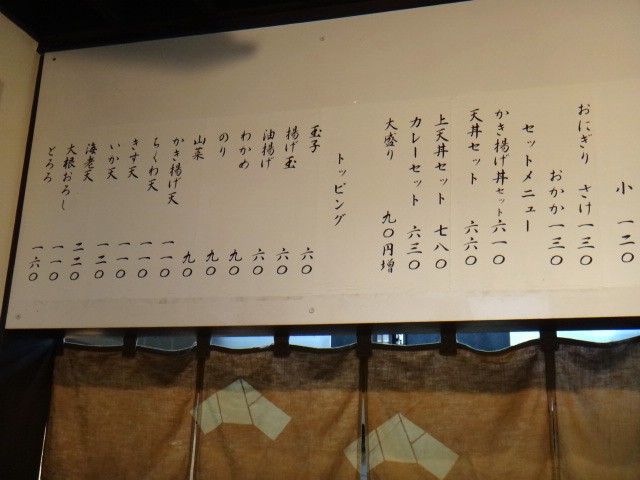 小 一二〇
おにぎり さけ一三〇
おかか一三〇
セットメニュー
かき揚げ丼セット六一〇
天丼セット 六六〇
上天丼セット 七八〇
カレーセット 六三〇
大盛り 九〇円増
トッピング
玉子 六〇
揚げ玉 六〇
油揚げ 六〇
わかめ 九〇
のり 九〇
山菜 九〇
かき揚げ天 一一〇
ちくわ天 一一〇
きす天 一一〇
いか天 一二〇
海老天 二二〇
大根おろし 一一〇
とろろ 一六〇